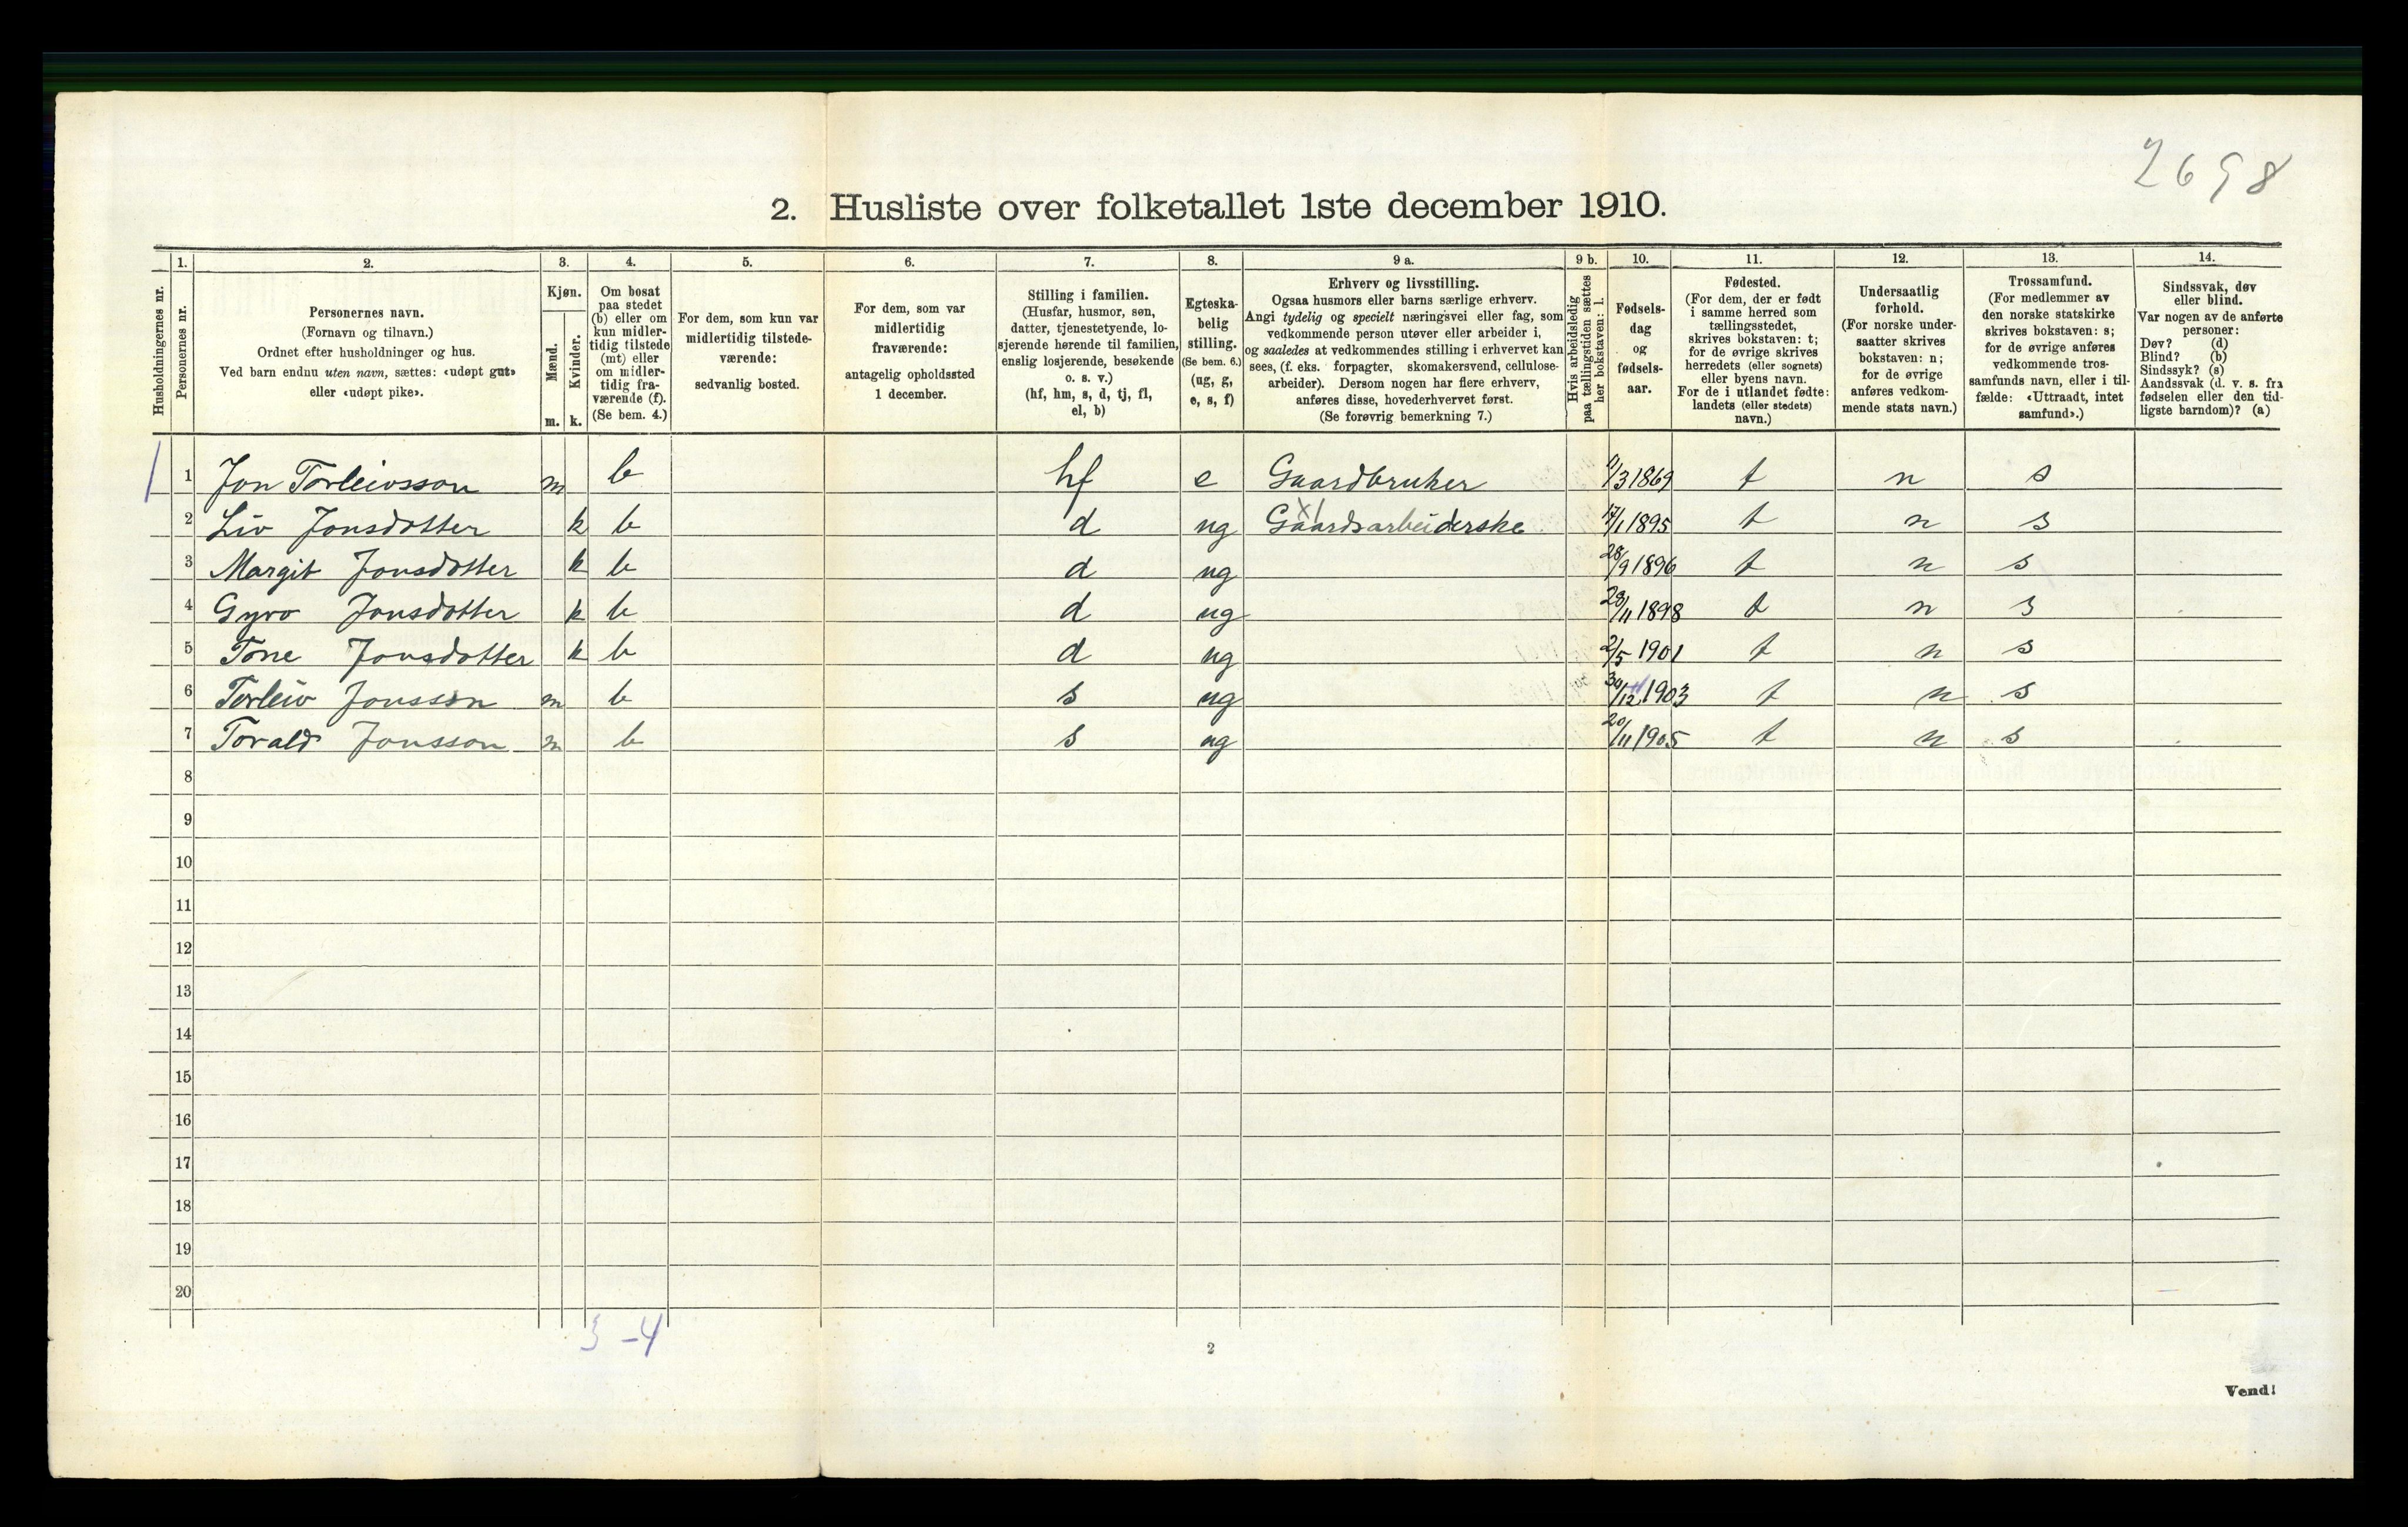 2698
2. Husliste over folketallet 1ste december 1910.
1. 2. 3. 4. 5. 6. 7. 8. 9 a. 9 b. 10. 11. 12. 13. 14.
Husholdningernes nr.
Personernes nr.
Personernes navn.
(Fornavn og tilnavn.)
Ordnet efter husholdninger og hus.
Ved barn endnu uten navn, sættes: «udøpt gut»
eller «udøpt pike».
Kjøn.
Mænd.
Kvinder.
m. k.
Om bosat
paa stedet
(b) eller om
kun midler-
tidig tilstede
(mt) eller
om midler-
tidig fra-
værende (f).
(Se bem. 4.)
For dem, som kun var
midlertidig tilstede-
værende:
sedvanlig bosted.
For dem, som var
midlertidig
fraværende:
antagelig opholdssted
1 december.
Stilling i familien.
(Husfar, husmor, søn,
datter, tjenestetyende, lo-
sjerende hørende til familien,
enslig losjerende, besøkende
o. s. v.)
(hf, hm, s, d, tj, fl,
el, b)
Egteska-
belig
stilling.
(Se bem. 6.)
(ug, g,
e, s, f)
Erhverv og livsstilling.
Ogsaa husmors eller barns særlige erhverv.
Angi tydelig og specielt næringsvei eller fag, som
vedkommende person utøver eller arbeider i,
og saaledes at vedkommendes stilling i erhvervet kan
sees, (f. eks. forpagter, skomakersvend, cellulose-
arbeider). Dersom nogen har flere erhverv,
anføres disse, hovederhvervet først.
(Se forøvrig bemerkning 7.)
Hvis arbeidsledig
paa tællingstiden sættes
her bokstaven: l.
Fødsels-
dag
og
fødsels-
aar.
Fødested.
(For dem, der er født
i samme herred som
tællingsstedet,
skrives bokstaven: t;
for de øvrige skrives
herredets (eller sognets)
eller byens navn.
For de i utlandet fødte:
landets (eller stedets)
navn.)
Undersaatlig
forhold.
(For norske under-
saatter skrives
bokstaven: n;
for de øvrige
anføres vedkom-
mende stats navn.)
Trossamfund.
(For medlemmer av
den norske statskirke
skrives bokstaven: s;
for de øvrige anføres
vedkommende tros-
samfunds navn, eller i til-
fælde: «Uttraadt, intet
samfund».)
Sindssvak, døv
eller blind.
Var nogen av de anførte
personer:
Døv? (d)
Blind? (b)
Sindssyk? (s)
Aandssvak (d. v. s. fra
fødselen eller den tid-
ligste barndom)? (a)
1 1 Jon Torleivsson m b hf e Gaardbruker /3 1869 t n s
2 Liv Jonsdotter k b d ug Gaardsarbeiderske 17/1 1895 t n s
3 Margit Jonsdotter k b d ug 28/9 1896 t n s
4 Gyro Jonsdotter k b d ug 28/11 1898 t n s
5 Tone Jonsdotter k b d ug 2/5 1901 t n s
6 Torleiv Jonsson m b s ug 30/12 1903 t n s
7 Torald Jonsson m b s ug 20/11 1905 t n s
8
9
10
11
12
13
14
15
16
17
18
19
20
3 - 4
2
Vend!